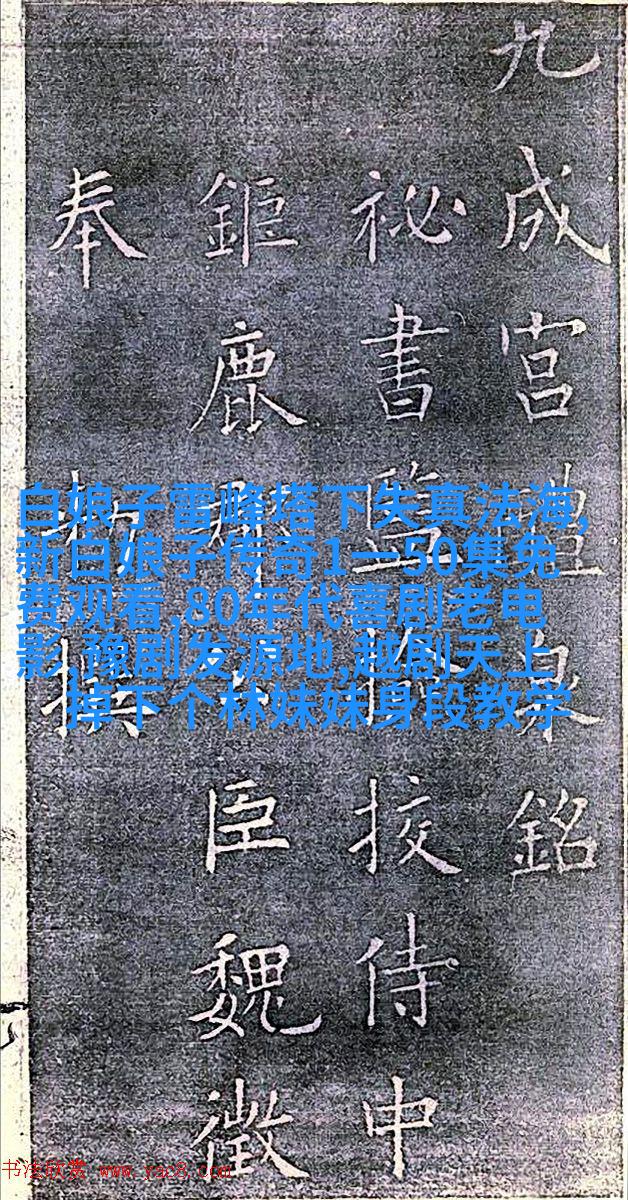 九成宮醴泉銘
祕書監檢挍侍中
鉅鹿郡公臣魏徵
奉撰
白娘子雷峰塔下失真法海,
新白娘子传奇1一50集免
费观看,80年代喜剧老电
影,豫剧发源地,越剧天上
掉下个林妹妹身段教学
书法欣赏 www.yac8.com